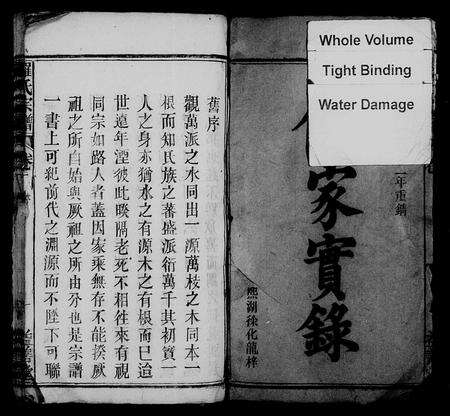 Whole Volume
Tight Binding
Water Damage
家實錄
二年重鐫
熙湖徐化龍梓
舊序
觀萬派之水同出一源萬枝之木同本一
根而知氏族之蕃盛派衍萬千其初實一
人之身亦猶水之有源木之有根而已迨
世遠年湮彼此暌隔老死不相往來有視
同宗如路人者蓋因家乘無存不能揆厥
祖之所自始與厥祖之所由分也是宗譜
一書上可紀前代之淵源而不墜下可聯
氏宗譜